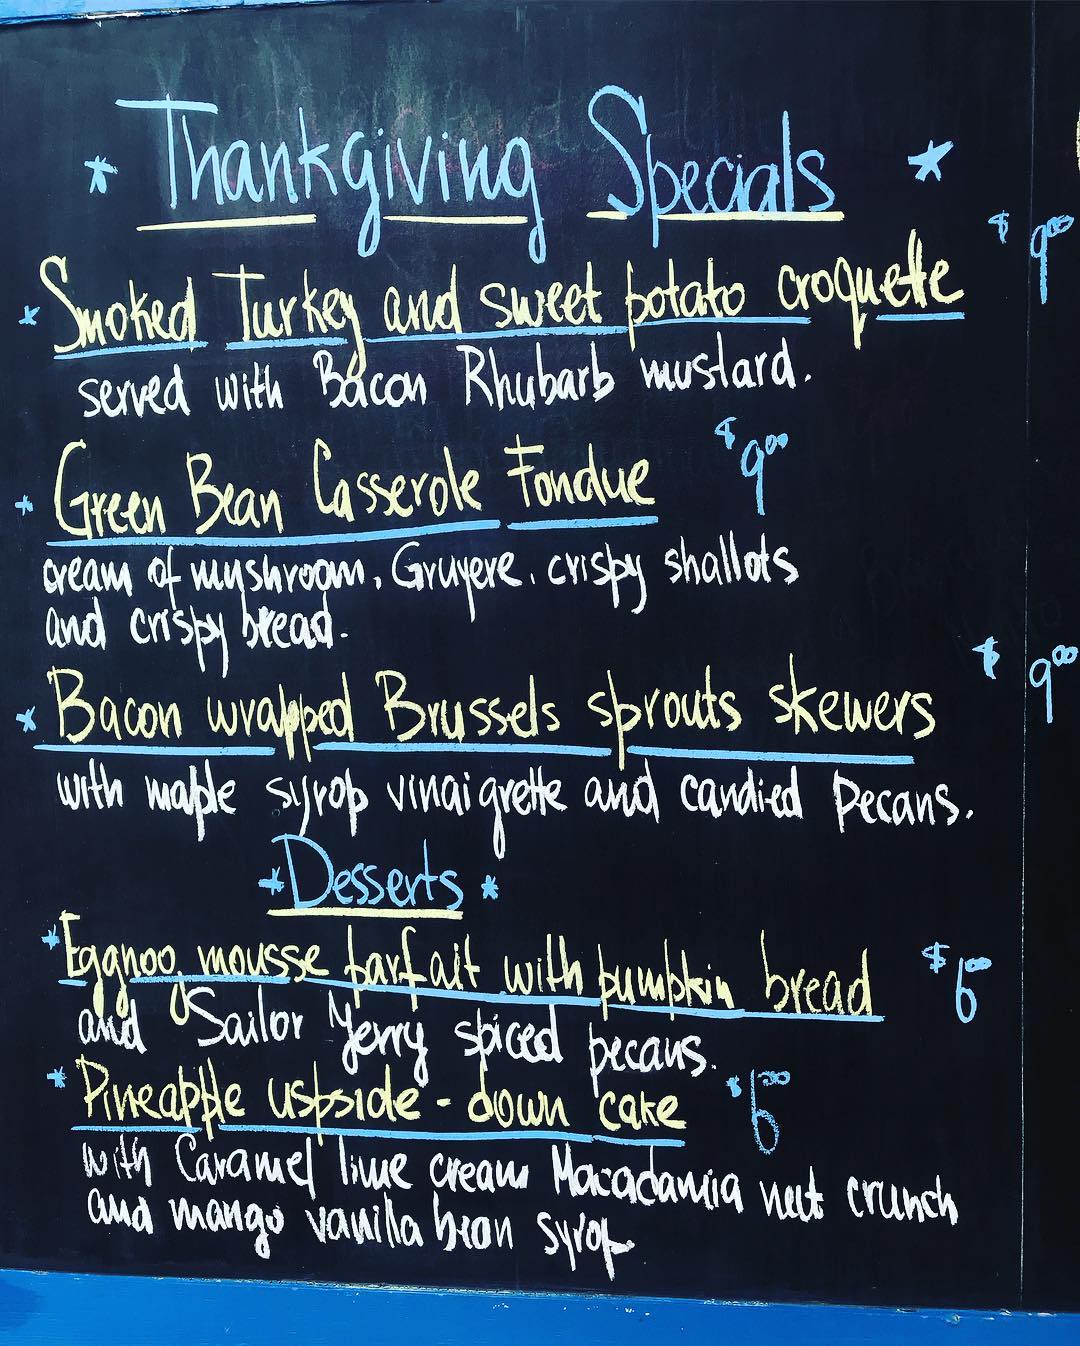 * Thankgiving Specials *
* Smoked Turkey and sweet potato croquette $ 9.00
served with Bacon Rhubarb mustard.
* Green Bean Casserole Fondue $ 9.00
cream of myshroom, Gruyere, crispy shallots
and crispy bread.
* Bacon wrapped Brussels sprouts skewers $ 9.00
with maple syrop vinaigrette and candied Pecans.
* Desserts *
* Eggnog mousse parfait with pumpkin bread $ 6.00
and Sailor Jerry spiced pecans.
* Pineapple uspside-down cake $ 6.00
with Caramel lime cream Macadamia nut crunch
and mango vanilla bean syrop